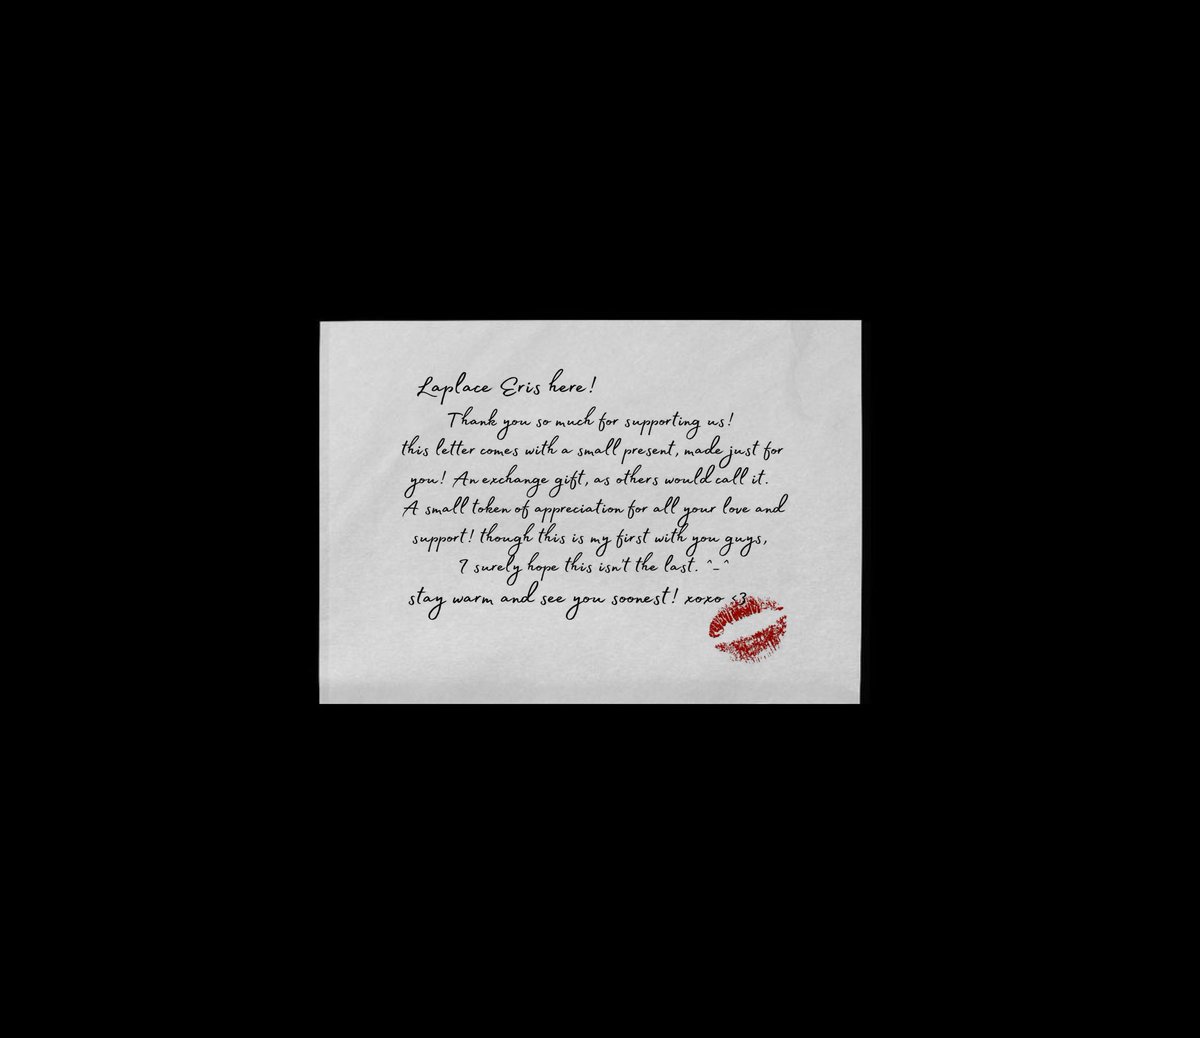 Laplace Eris here!
Thank you so much for supporting us!
this letter comes with a small present, made just for
you! An exchange gift, as others would call it.
A small token of appreciation for all your love and
support! though this is my first with you guys,
I surely hope this isn't the last. ^_^
stay warm and see you soonest! xoxo <3